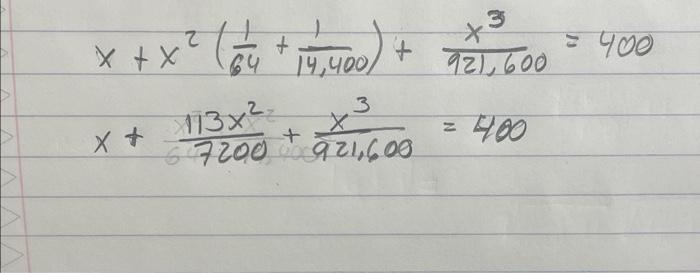 x + x² (1/64 + 1/14,400) + x³/921,600 = 400
x + 113x²/7200 + x³/921,600 = 400